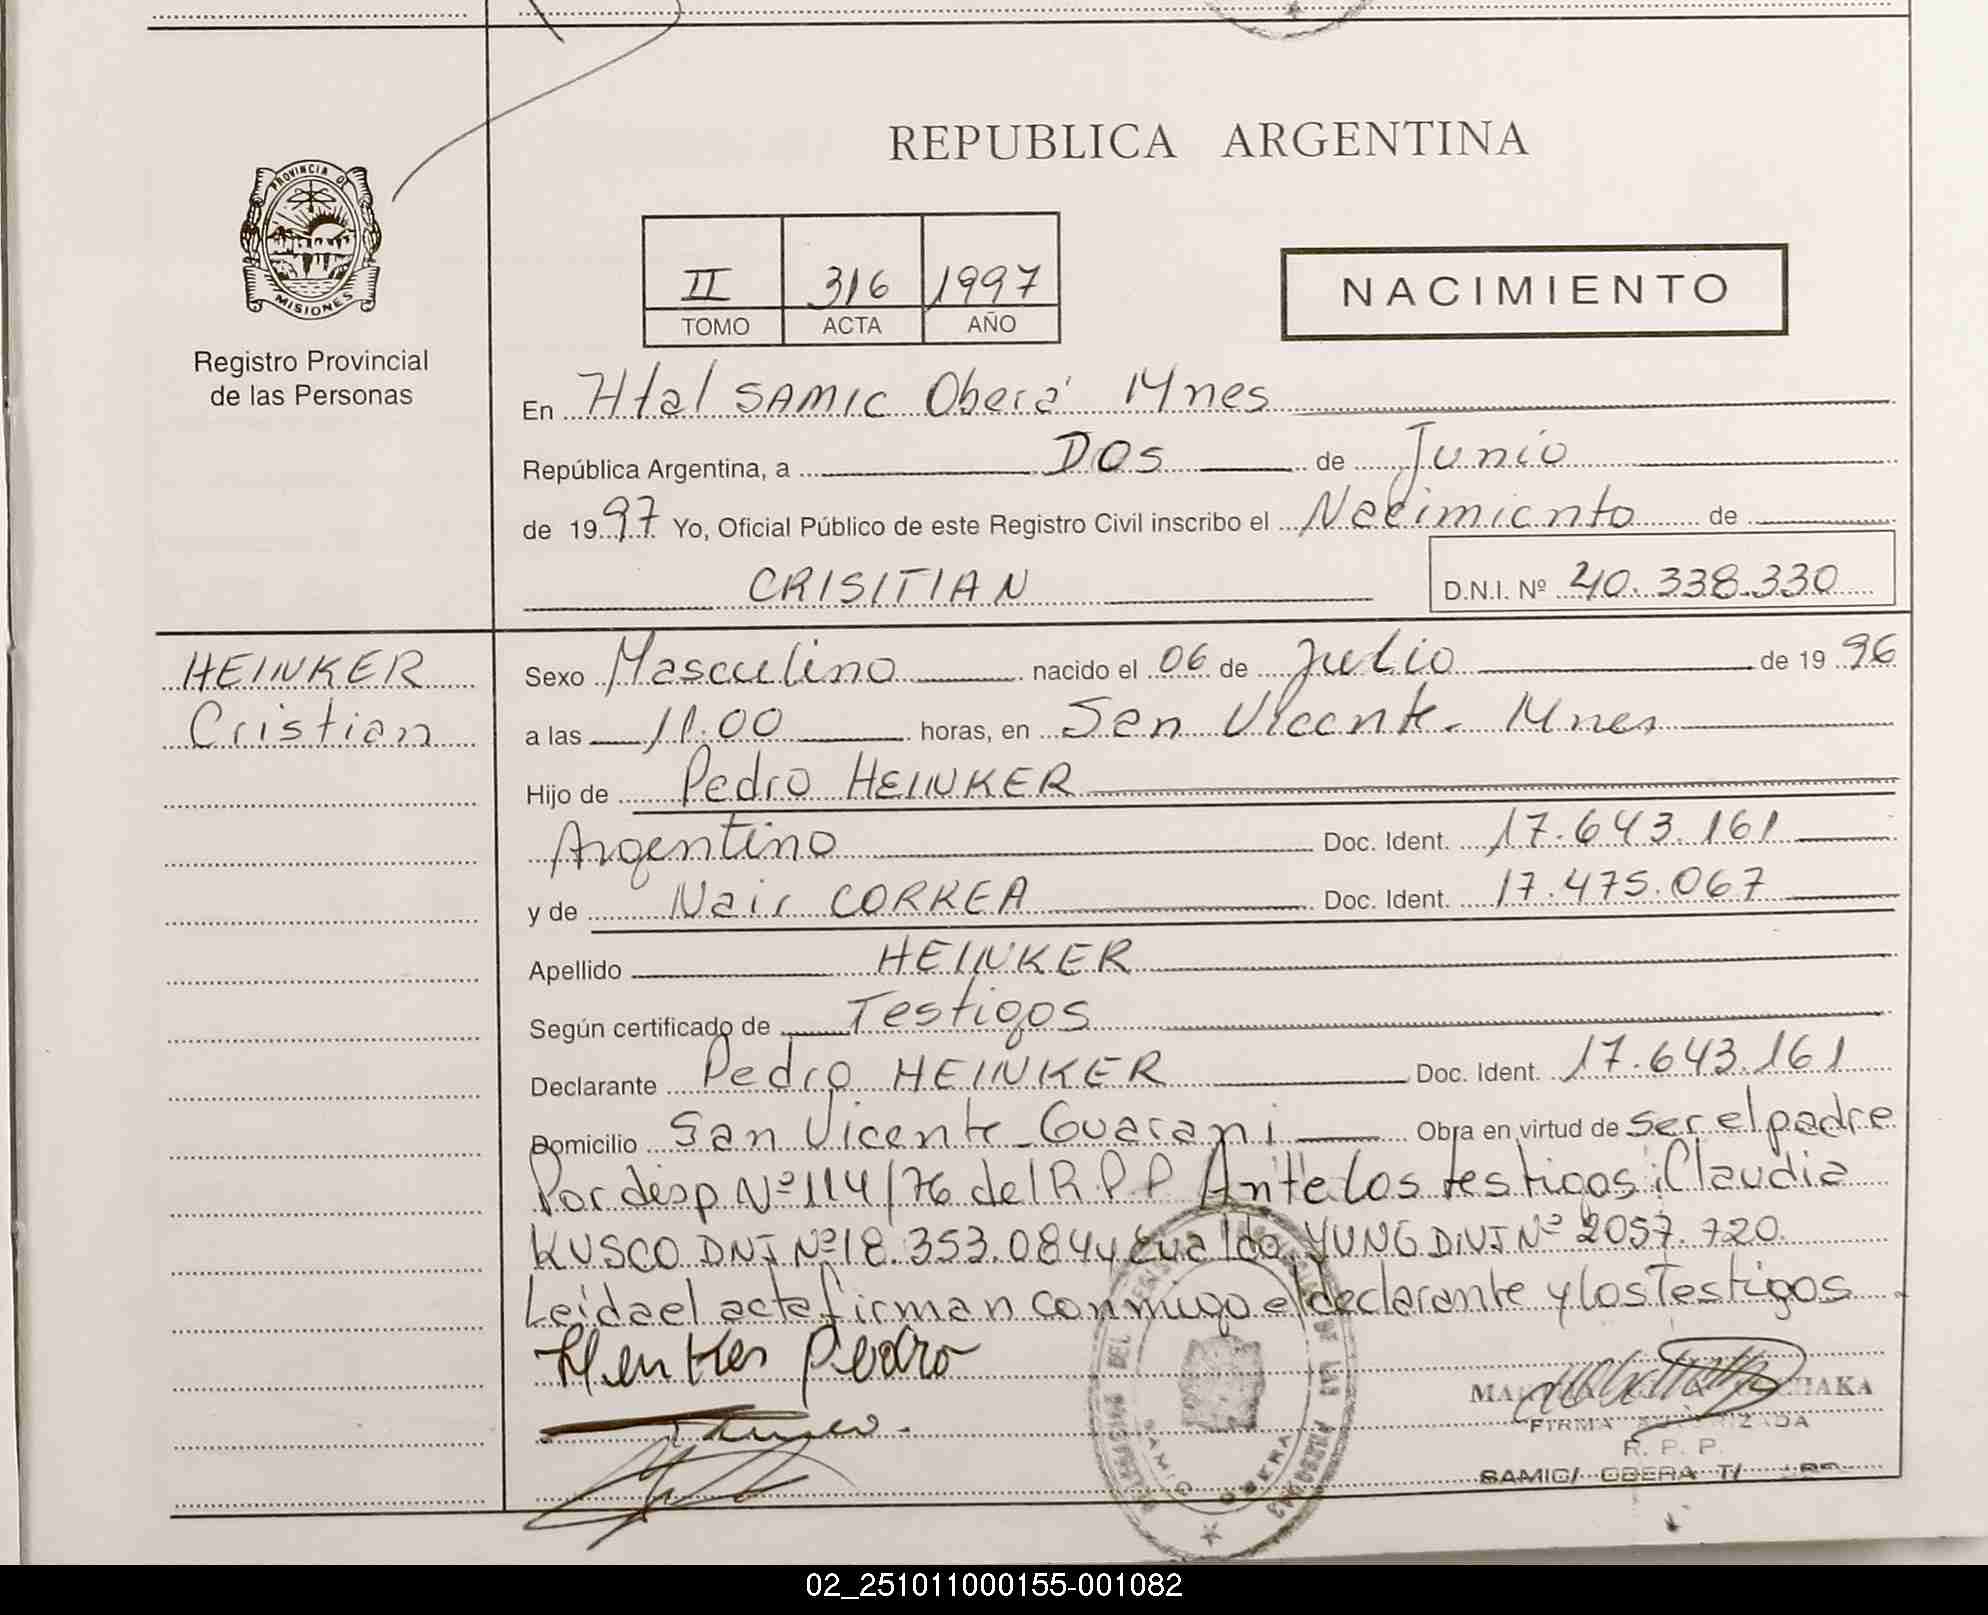 REPUBLICA ARGENTINA
PROVINCIA DE
MISIONES
Registro Provincial
de las Personas
II 316 1997
TOMO ACTA AÑO
NACIMIENTO
En Htal SAMIC Oberá Mnes
República Argentina, a DOS de Junio
de 1997 Yo, Oficial Público de este Registro Civil inscribo el Nacimiento de
CRISITIAN
D.N.I. Nº 40.338.330
HEINKER
Cristian
Sexo Masculino nacido el 06 de Julio de 1996
a las 11.00 horas, en San Vicente - Mnes
Hijo de Pedro HEINKER
Argentino Doc. Ident. 17.643.161
y de Nair CORREA Doc. Ident. 17.475.067
Apellido HEINKER
Según certificado de Testigos
Declarante Pedro HEINKER Doc. Ident. 17.643.161
Domicilio San Vicente - Guarani Obra en virtud de ser el padre
Por disp Nº 114/76 del R.P.P Ante los testigos: Claudia
KUSCO DNI Nº 18.353.084 y Evaldo YUNG DNI Nº 2057.720.
Leida el acta firman conmigo el declarante y los Testigos
Pedro
FIRMA AUTORIZADA
R. P. P.
SAMIC/ OBERA
SAMIC OBERA
02_251011000155-001082